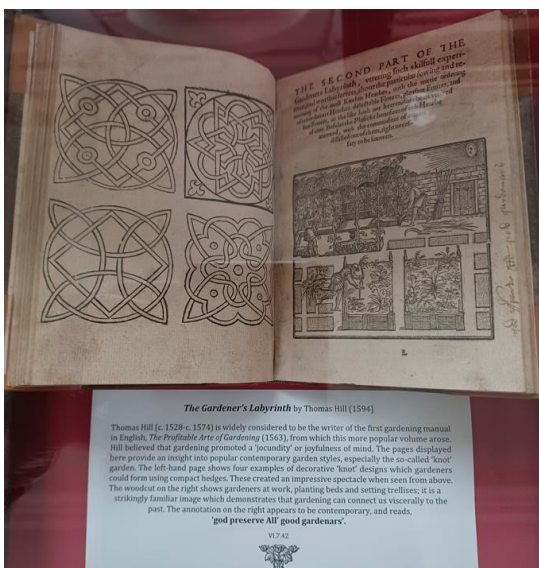 THE SECOND PART OF THE
Gardeners Labyrinth, uttering such skilfull experi-
The Gardener's Labyrinth by Thomas Hill (1594)
Thomas Hill (c. 1528-c. 1574) is widely considered to be the writer of the first gardening manual
in English, The Profitable Arte of Gardening (1563), from which this more popular volume arose.
Hill believed that gardening promoted a 'jocundity' or joyfulness of mind. The pages displayed
here provide an insight into popular contemporary garden styles, especially the so-called 'knot'
garden. The left-hand page shows four examples of decorative 'knot' designs which gardeners
could form using compact hedges. These created an impressive spectacle when seen from above.
The woodcut on the right shows gardeners at work, planting beds and setting trellises; it is a
strikingly familiar image which demonstrates that gardening can connect us viscerally to the
past. The annotation on the right appears to be contemporary, and reads,
'god preserve All' good gardenars'.
VI.7.42